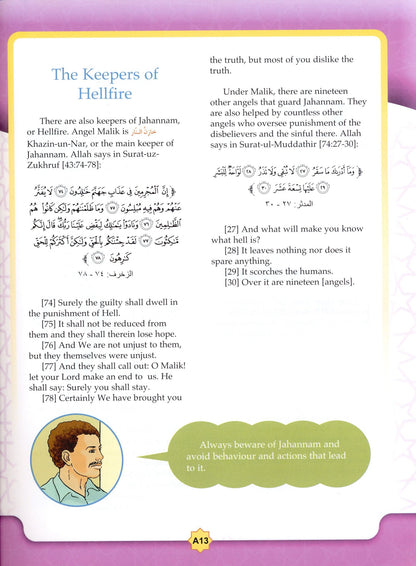 The Keepers of
Hellfire
There are also keepers of Jahannam,
or Hellfire. Angel Malik is خَازِنُ النَّار
Khazin-un-Nar, or the main keeper of
Jahannam. Allah says in Surat-uz-
Zukhruf [43:74-78]:
﴿ إِنَّ ٱلْمُجْرِمِينَ فِى عَذَابِ جَهَنَّمَ خَٰلِدُونَ ٧٤ لَا يُفَتَّرُ
عَنْهُمْ وَهُمْ فِيهِ مُبْلِسُونَ ٧٥ وَمَا ظَلَمْنَٰهُمْ وَلَٰكِن كَانُوا۟ هُمُ
ٱلظَّٰلِمِينَ ٧٦ وَنَادَوْا۟ يَٰمَٰلِكُ لِيَقْضِ عَلَيْنَا رَبُّكَ قَالَ إِنَّكُم
مَّٰكِثُونَ ٧٧ لَقَدْ جِئْنَٰكُم بِٱلْحَقِّ وَلَٰكِنَّ أَكْثَرَكُمْ لِلْحَقِّ
كَٰرِهُونَ ٧٨ ﴾
الزخرف: ٧٤ - ٧٨
[74] Surely the guilty shall dwell in
the punishment of Hell.
[75] It shall not be reduced from
them and they shall therein lose hope.
[76] And We are not unjust to them,
but they themselves were unjust.
[77] And they shall call out: O Malik!
let your Lord make an end to us. He
shall say: Surely you shall stay.
[78] Certainly We have brought you
the truth, but most of you dislike the
truth.
Under Malik, there are nineteen
other angels that guard Jahannam. They
are also helped by countless other
angels who oversee punishment of the
disbelievers and the sinful there. Allah
says in Surat-ul-Muddathir [74:27-30]:
﴿ وَمَآ أَدْرَىٰكَ مَا سَقَرُ ٢٧ لَا تُبْقِى وَلَا تَذَرُ ٢٨ لَوَّاحَةٌ لِّلْبَشَرِ
٢٩ عَلَيْهَا تِسْعَةَ عَشَرَ ٣٠ ﴾
المدثر: ٢٧ - ٣٠
[27] And what will make you know
what hell is?
[28] It leaves nothing nor does it
spare anything.
[29] It scorches the humans.
[30] Over it are nineteen [angels].
Always beware of Jahannam and
avoid behaviour and actions that lead
to it.
A13